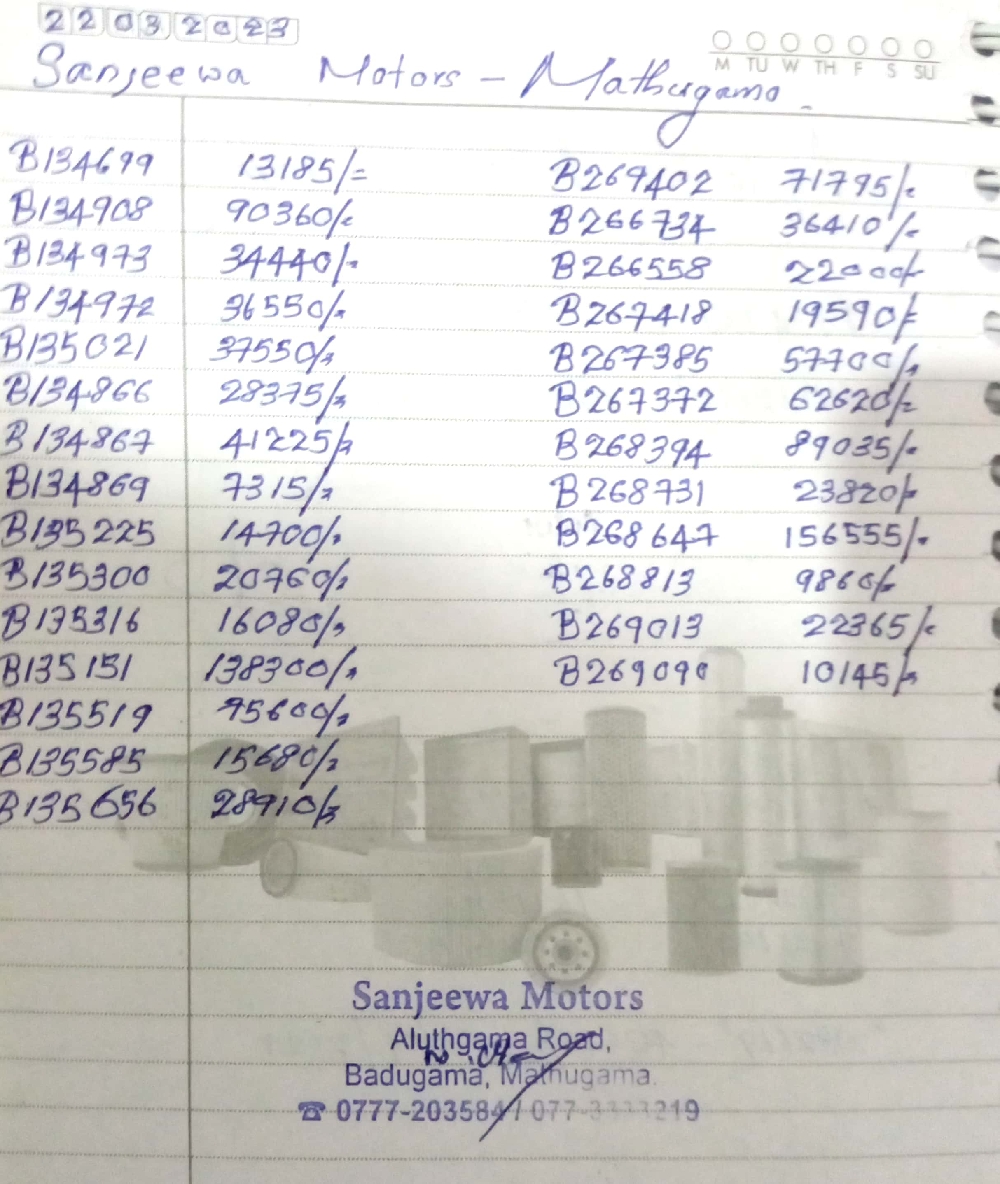 22032023
M TU W TH F S SU
Sanjeewa Motors - Mathugama.
B134699 13185/= B269402 71795/=
B134908 90360/= B266734 36410/=
B134973 34440/= B266558 22000/=
B134972 36550/= B267418 19590/=
B135021 37550/= B267385 57700/=
B134866 28375/= B267372 62620/=
B134867 41225/= B268394 89035/=
B134869 7315/= B268731 23820/=
B135225 14700/= B268647 156555/=
B135300 20760/= B268813 9860/=
B135316 16080/= B269013 22365/=
B135151 138300/= B269090 10145/=
B135519 95600/=
B135585 15680/=
B135656 28910/=
Sanjeewa Motors
Aluthgama Road,
Badugama, Mathugama.
☎ 0777-203584 / 077-3333219